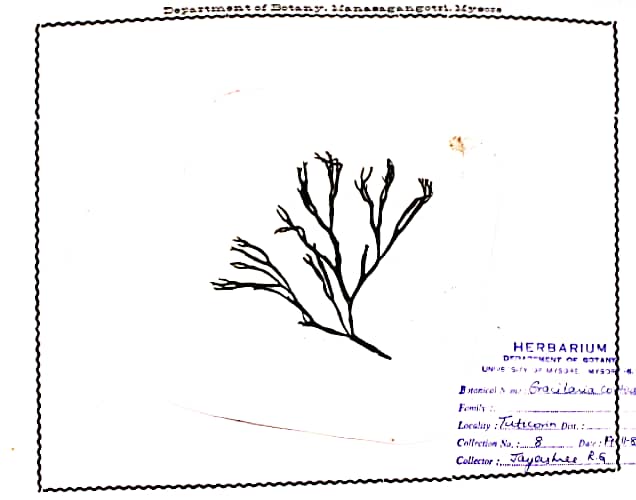 Department of Botany, Manasagangotri, Mysore
HERBARIUM
DEPARTMENT OF BOTANY
UNIVERSITY OF MYSORE, MYSORE -6.
Botanical Name : Gracilaria
Family :
Locality : Tuticorin Dist. :
Collection No. : 8 Date :
Collector : Jayashree R.G